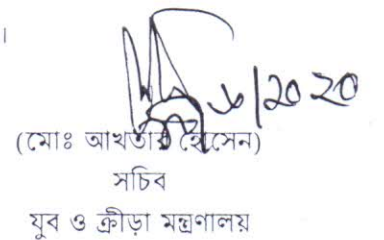 ।
৬/২০২০
(মোঃ আখতার হোসেন)
সচিব
যুব ও ক্রীড়া মন্ত্রণালয়